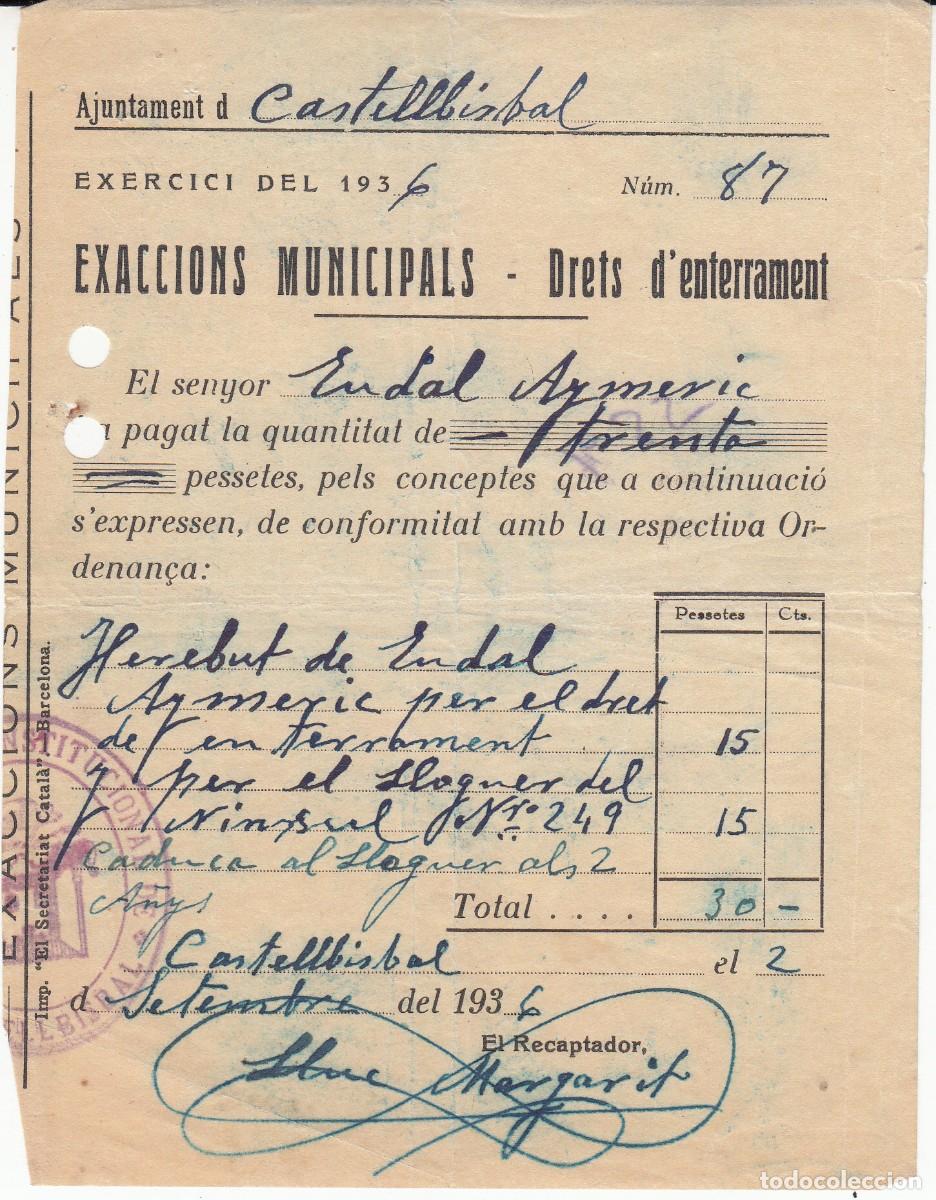 Ajuntament d Castellbisbal
EXERCICI DEL 1936 Núm. 87
EXACCIONS MUNICIPALS - Drets d'enterrament
El senyor Eudal Aymeric
a pagat la quantitat de — trenta
— pessetes, pels conceptes que a continuació
s'expressen, de conformitat amb la respectiva Or-
denança:
Pessetes Cts.
Herebut de Eudal
Aymeric per el dret
de enterrament 15
y per el Lloguer del
Ninxul Nro 249 15
Caduca al Lloguer als 2
Añys Total .... 30 -
Castellbisbal el 2
d Setembre del 1936
El Recaptador,
Lluc Margarit
EXACCIONS MUNICIPALS
Imp. "El Secretariat Català" - Barcelona.
todocoleccion